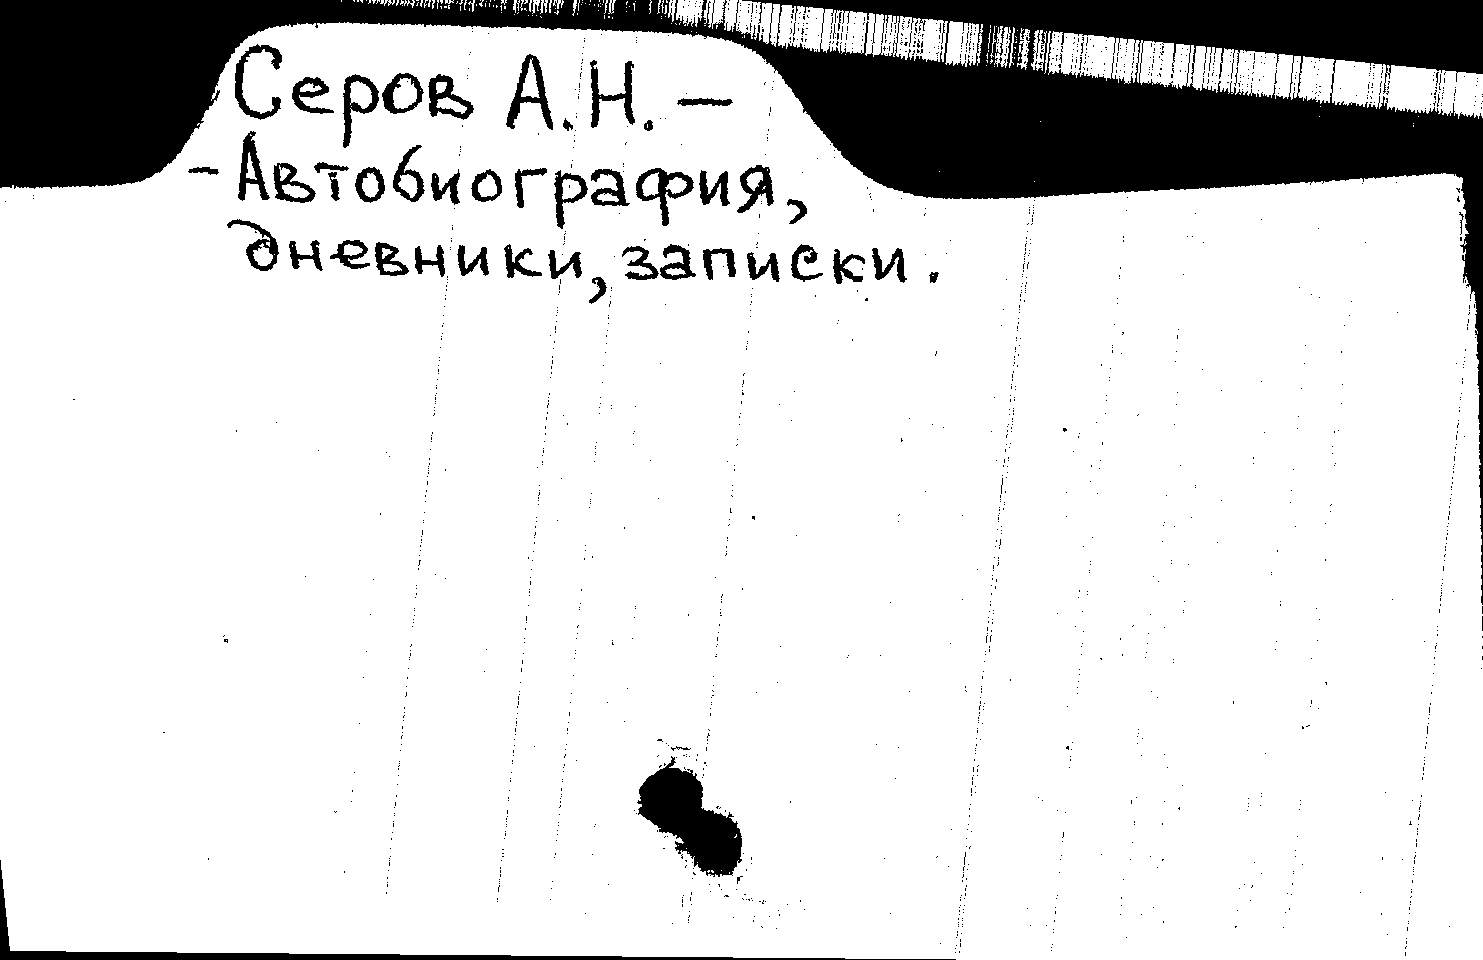 Серов А.Н. —
- Автобиография,
дневники, записки.